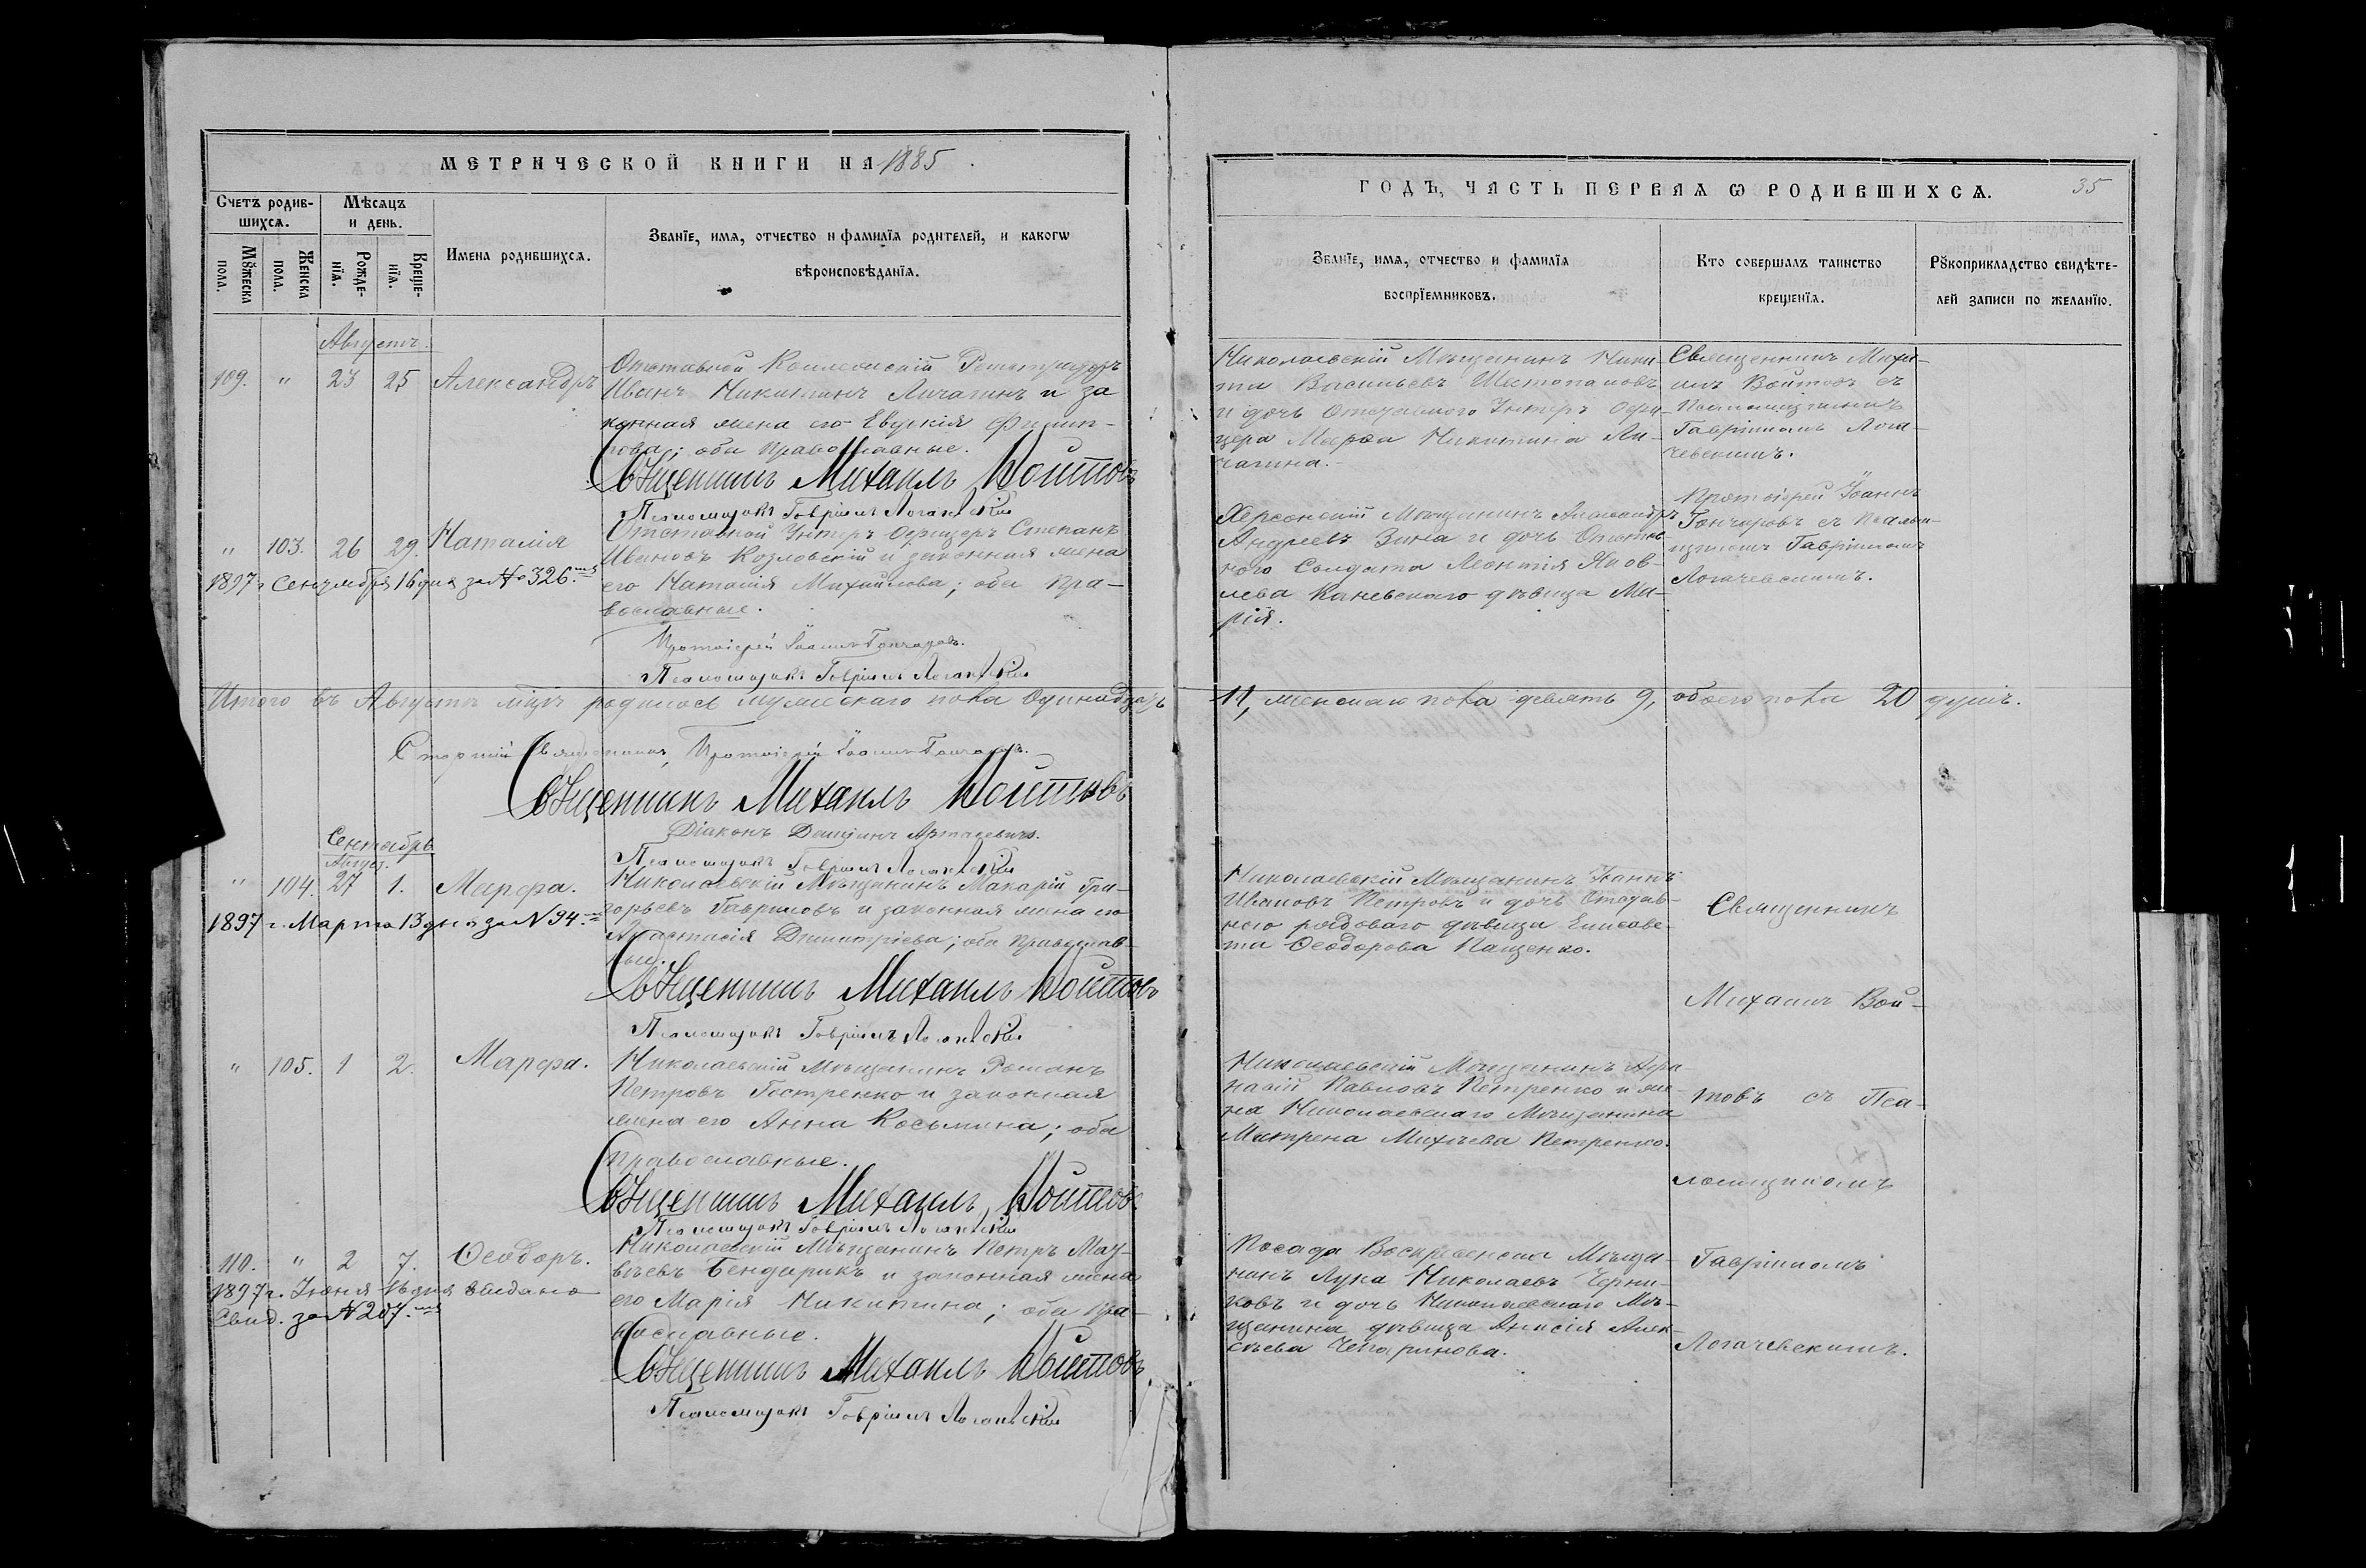 МЕТРИЧЕСКОЙ КНИГИ НА 1885
Счетъ родив-
шихсѧ.
Мѣсѧцъ
и день.
Имена родившихсѧ.
Званїе, имѧ, отчество и фамилїѧ родителей, и какогѡ
вѣроисповѣданїѧ.
Мꙋжеска
пола.
Женска
пола.
Рожде-
нїѧ.
Креще-
нїѧ.
Августъ.
109. " 23 25 Александръ
Отставной Коллежскій Регистраторъ
Иванъ Никитинъ Личагинъ и за
конная жена его Евдокія Филип-
пова; оба православные.
Священникъ Михаилъ Войтовъ
Псаломщикъ Гавріилъ Логачевскій
" 103. 26 29. Наталія
Отставной Унтеръ Офицеръ Степанъ
Ивановъ Козловскій и законная жена
его Наталія Михайлова; оба пра-
вославные.
1897 г Сентября 16 дня за № 326.
Протоіерей Іоаннъ Гончаровъ.
Псаломщикъ Гавріилъ Логачевскій
Итого въ Августѣ мцѣ родилось мужескаго пола одинадцать
Старшій Священникъ, Протоіерей Іоаннъ Гончаровъ.
Священникъ Михаилъ Войтовъ
Діаконъ
Псаломщикъ Гавріилъ Логачевскій
Сентябрь
Август.
" 104. 27 1. Марфа.
Николаевскій Мѣщанинъ Макарій Гри-
горьевъ Гавриловъ и законная жена его
Анастасія Димитріева; оба православ-
ные.
1897 г. Марта 13 дня за № 94.
Священникъ Михаилъ Войтовъ
Псаломщикъ Гавріилъ Логачевскій
" 105. 1 2. Марфа.
Николаевскій Мѣщанинъ Романъ
Петровъ Гостренко и законная
жена его Анна Косьмина; оба
православные.
Священникъ Михаилъ Войтовъ
Псаломщикъ Гавріилъ Логачевскій
110. " 2 7. Ѳеодоръ.
Николаевскій Мѣщанинъ Петръ Мат-
вѣевъ Бендарикъ и законная жена
его Марія Никитина; оба пра-
вославные.
1897 г. Іюня 16 дня выдано
Свид. за № 207.
Священникъ Михаилъ Войтовъ
Псаломщикъ Гавріилъ Логачевскій
ГОДЪ, ЧАСТЬ ПЕРВАѦ Ѡ РОДИВШИХСѦ. 35
Званїе, имѧ, отчество и фамилїѧ
воспрїемниковъ.
Кто совершалъ таинство
крещенїѧ.
Рꙋкоприкладство свидѣте-
лей записи по желанїю.
Николаевскій Мѣщанинъ Ники-
та Васильевъ Шатопаловъ
и дочь Отставнаго Унтеръ Офи-
цера Марфа Никитина Ли-
чагина.
Священникъ Миха-
илъ Войтовъ съ
Псаломщикомъ
Гавріиломъ Лога-
чевскимъ.
Херсонскій Мѣщанинъ Александръ
Андреевъ Зина и дочь Отстав-
ного Солдата Леонтія Яков-
лева Каневскаго дѣвица Ма-
рія.
Протоіерей Іоаннъ
Гончаровъ съ Псалом-
щикомъ Гавріиломъ
Логачевскимъ.
11, женскаго пола девять 9, обоего пола 20 душъ.
Николаевскій Мѣщанинъ
Ивановъ Петровъ и дочь Отстав-
ного рядоваго дѣвица Елисаве-
та Ѳеодорова Пащенко.
Священникъ
Михаилъ Вой-
товъ съ Пса-
ломщикомъ
Гавріиломъ
Логачевскимъ.
Николаевскій Мѣщанинъ Афа
насій Павловъ Петренко и же-
на Николаевскаго Мѣщанина
Матрена Михѣева Петренко.
Посада Воскресенска Мѣща-
нинъ Лука Николаевъ Черни-
ковъ и дочь Николаевскаго Мѣ-
щанина дѣвица Анисія Алек-
сѣева Чепаринова.